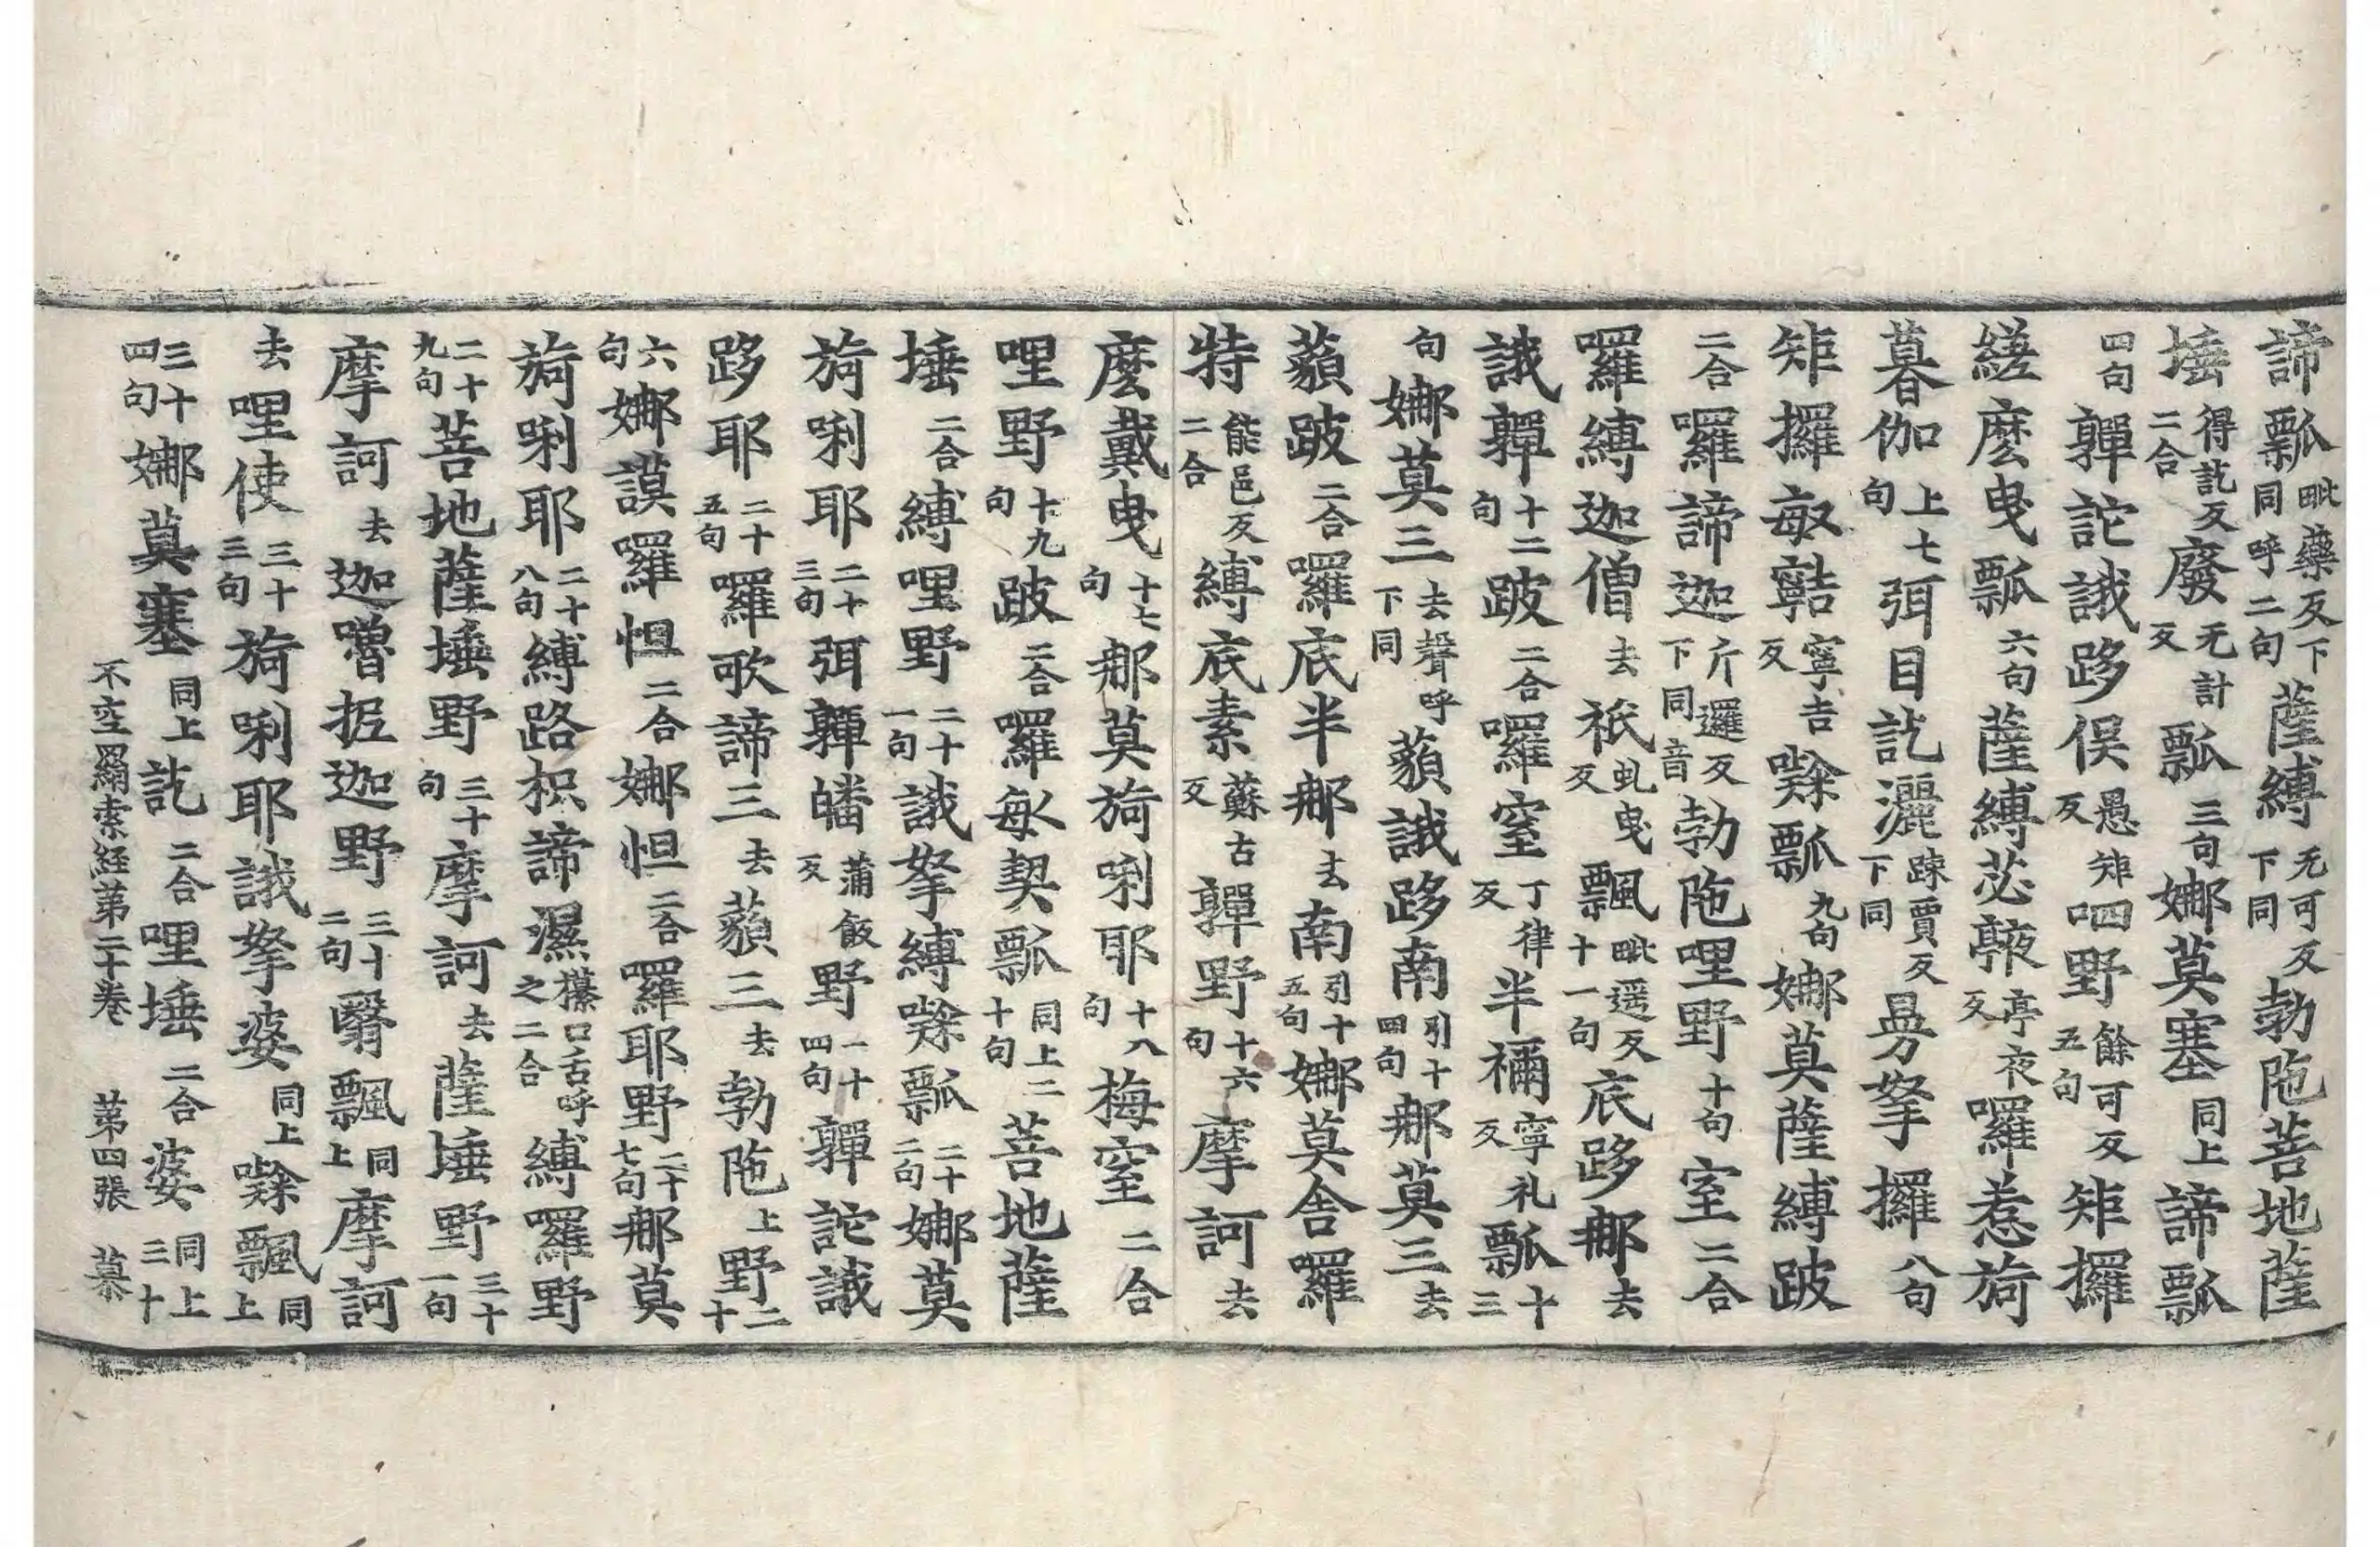 諦瓢毗藥反下同呼二句薩縛无可反下同勃陁菩地薩
埵得訖反二合廢无計反瓢三句娜莫塞同上諦瓢
四句鄲詑誐跢俁愚矩反呬野餘可反五句矩攞
縒麼曳瓢六句薩縛苾亭夜反囉惹荷
暮伽上七句弭目訖灑踈賈反下同曷拏攞八句
矩攞敏寧吉反瓢九句娜莫薩縛跛
二合囉諦迦斤邏反下同音勃陁哩野十句室二合
囉縛迦僧去祇虬曳反飄毗遥反十一句底跢郍去
誐鄲十二句跛二合囉窒丁律反半禰寧礼反瓢十三
句娜莫三去聲呼下同藐誐跢南引十四句郍莫三去
藐跛二合囉底半郍去南引十五句娜莫舍囉
特能邑反二合縛底素蘇古反鄲野十六句摩訶去
麼戴曳十七句郍莫荷唎耶十八句梅窒二合
哩野十九句跛二合囉敏契瓢同上二十句菩地薩
埵二合縛哩野二十一句誐拏縛瓢二十二句娜莫
荷唎耶二十三句弭鄲皤蒲飯反野二十四句鄲詑誐
跢耶二十五句囉歌諦三去藐三去勃陁上野二十
六句娜謨囉怛二合娜怛二合囉耶野二十七句郍莫
荷唎耶二十八句縛路枳諦濕攥口舌呼之二合縛囉野
二十九句菩地薩埵野三十句摩訶去薩埵野三十一句
摩訶去迦嚕抳迦野三十二句翳飄同上摩訶
去哩使三十三句荷唎耶誐拏婆同上飄同上
三十四句娜莫塞同上訖二合哩埵二合婆同上三十
不空羂索経苐二十卷 苐四張 慕